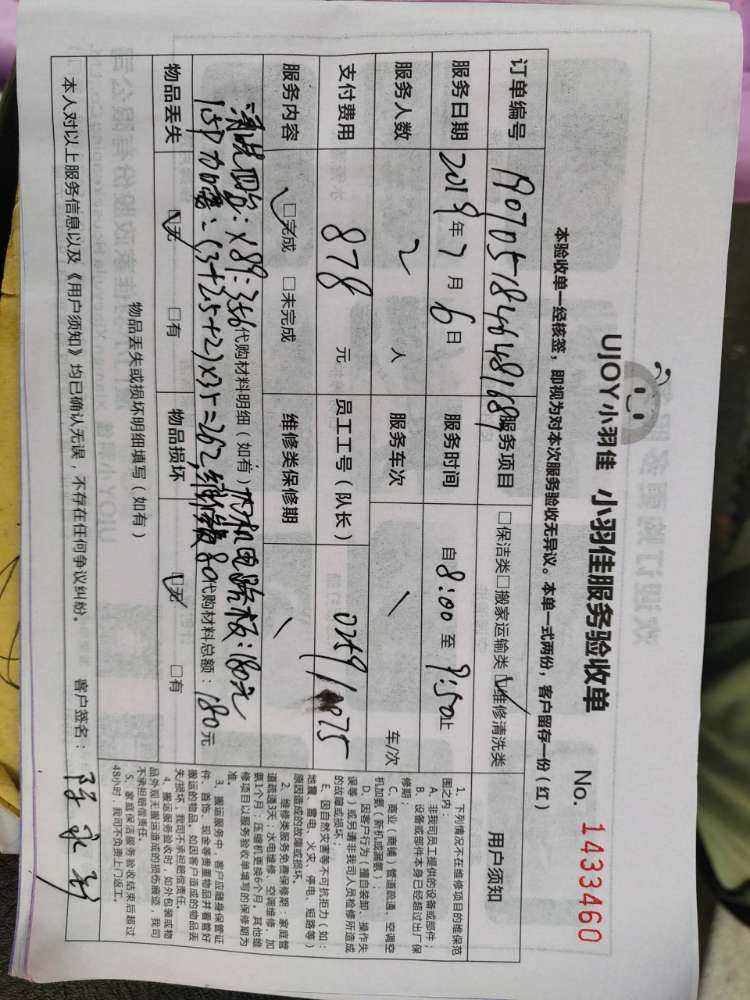 UJOY小羽佳 小羽佳服务验收单
No. 1433460
本验收单一经核签，即视为对本次服务验收无异议。本单一式两份，客户留存一份（红）
订单编号 服务项目 □保洁类□搬家运输类☑维修清洗类
服务日期 2019年7月6日 服务时间 自8:00至9:50止
服务人数 2人 服务车次 \ 车/次
支付费用 878元 员工工号（队长） 0759/1075
服务内容 ☑完成 □未完成 维修类保修期 \
清洗四台:×89=356 代购材料明细（如有） 内机电路板:180元
15P加雪:(3+2.5+2)×35=262 维修费80 代购材料总额：180元
物品丢失 ☑无 □有 物品损坏 ☑无 □有
物品丢失或损坏明细填写（如有）
本人对以上服务信息以及《用户须知》均已确认无误，不存在任何争议纠纷。 客户签名：
用户须知
1、下列情况不在维修项目的维保范
围之内：
A、非我司员工提供的设备或部件；
B、设备或部件本身已经超过出厂保
修期；
C、商业（商铺）管道疏通、空调空
机加氨（新机或漏氨）；
D、因客户行为（擅自装卸、操作失
误等）或另请非我司人员检修所造成
的故障或损坏。
E、因自然灾害等不可抗拒力（如：
地震、雷电、火灾、停电、短路等）
原因造成的故障或损坏。
2、维修类服务免费保修期：家庭管
道疏通3天；水电维修、空调维修、加
氨1个月；压缩机更换6个月，其他维
修项目以服务验收单填写的保修期为
准。
3、搬运服务中，客户应随身保管证
件、首饰、现金等贵重物品并看管好
搬运的物品。如因客户造成的物品丢
失/损坏，我司不承担赔偿责任。
4、搬运服务验收时，如外包装或物
品外观无搬运造成的损伤痕迹，我司
不承担赔偿责任。
5、家庭保洁服务验收结束后超过
48小时，我司不负责上门返工。